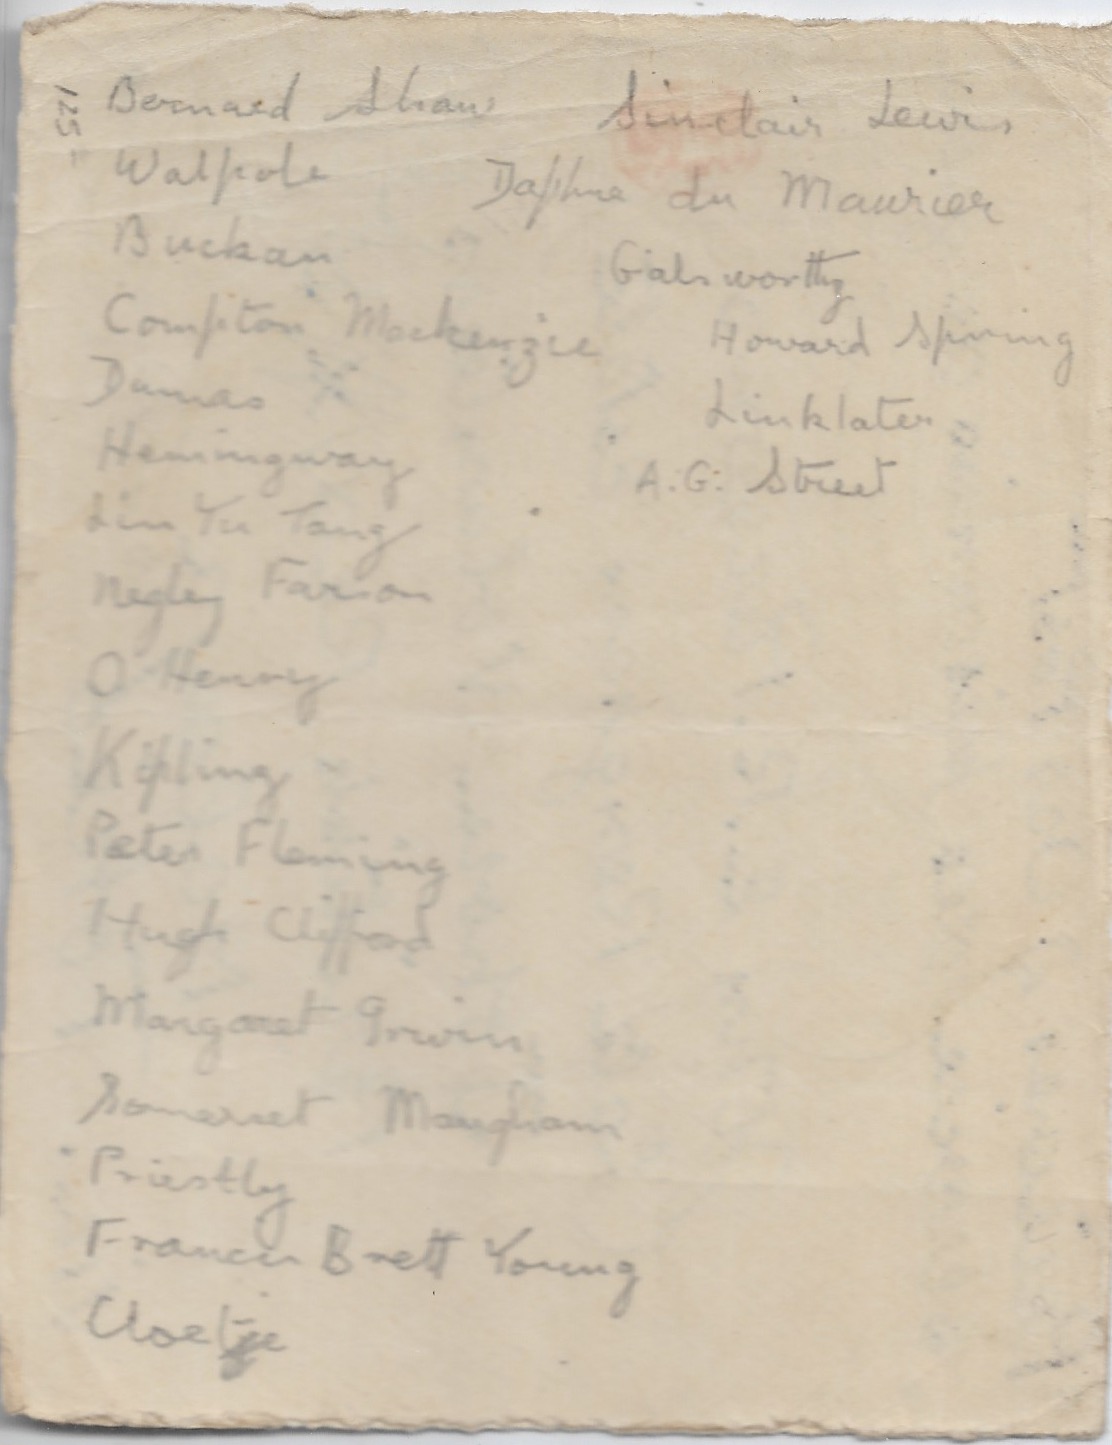 125
Bernard Shaw
Walpole
Buckan
Compton Mackenzie
Dumas
Hemingway
Lin Yu Tang
Negley Farson
O Henry
Kipling
Peter Fleming
Hugh Clifford
Margaret Irwin
Somerset Maugham
Priestly
Francis Brett Young
Cloetje
Sinclair Lewis
Daphne du Maurier
Galsworthy
Howard Spring
Linklater
A.G. Street